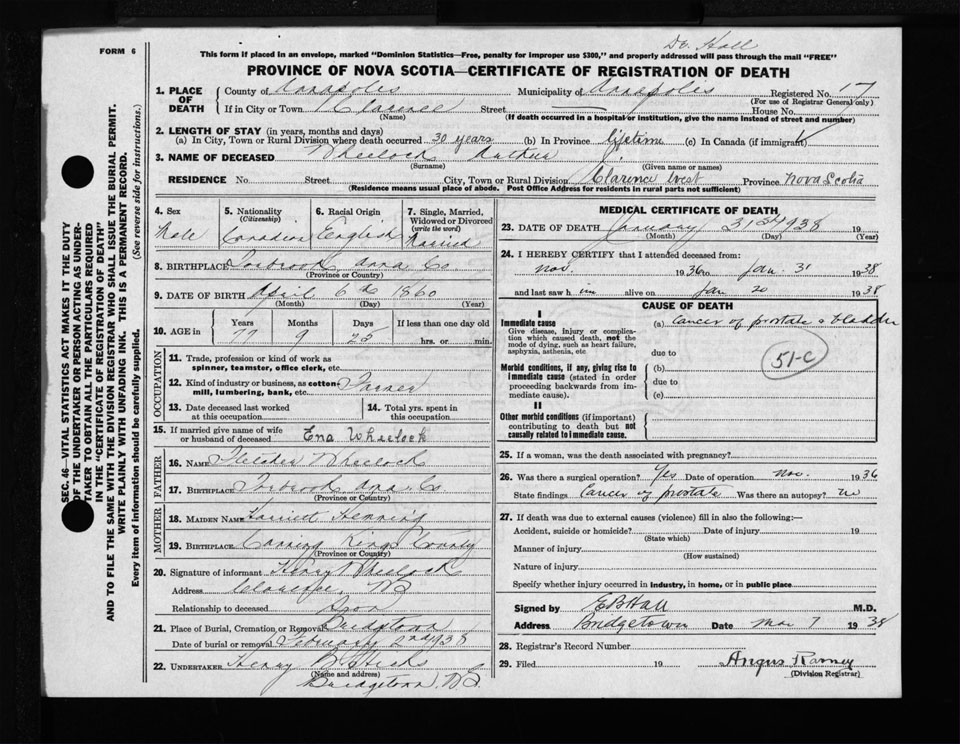 FORM 6
Dr. Hall
This form if placed in an envelope, marked "Dominion Statistics—Free, penalty for improper use $300," and properly addressed will pass through the mail "FREE"
PROVINCE OF NOVA SCOTIA—CERTIFICATE OF REGISTRATION OF DEATH
SEC. 46—VITAL STATISTICS ACT MAKES IT THE DUTY
OF THE UNDERTAKER OR PERSON ACTING AS UNDER-
TAKER TO OBTAIN ALL THE PARTICULARS REQUIRED
IN THE "CERTIFICATE OF REGISTRATION OF DEATH"
AND TO FILE THE SAME WITH THE DIVISION REGISTRAR WHO SHALL ISSUE THE BURIAL PERMIT.
WRITE PLAINLY WITH UNFADING INK. THIS IS A PERMANENT RECORD.
Every item of information should be carefully supplied. (See reverse side for instructions.)
1. PLACE OF DEATH
County of Annapolis Municipality of Annapolis Registered No. 17
(For use of Registrar General only)
If in City or Town Clarence Street House No.
(Name) (If death occurred in a hospital or institution, give the name instead of street and number)
2. LENGTH OF STAY (in years, months and days)
(a) In City, Town or Rural Division where death occurred 30 years (b) In Province lifetime (c) In Canada (if immigrant)
3. NAME OF DECEASED Wheelock Arthur J.
(Surname) (Given name or names)
RESIDENCE No. Street City, Town or Rural Division Clarence West Province Nova Scotia
(Residence means usual place of abode. Post Office Address for residents in rural parts not sufficient)
4. Sex Male
5. Nationality (Citizenship) Canadian
6. Racial Origin English
7. Single, Married, Widowed or Divorced (write the word) Married
8. BIRTHPLACE Torbrook Anna Co
(Province or Country)
9. DATE OF BIRTH April 6th 1860
(Month) (Day) (Year)
10. AGE in Years 77 Months 9 Days 25 If less than one day old hrs. or min.
OCCUPATION
11. Trade, profession or kind of work as spinner, teamster, office clerk, etc.
12. Kind of industry or business, as cotton mill, lumbering, bank, etc. Farmer
13. Date deceased last worked at this occupation
14. Total yrs. spent in this occupation
15. If married give name of wife or husband of deceased Ena Wheelock
FATHER
16. NAME Wheelock
17. BIRTHPLACE Torbrook Anna Co
(Province or Country)
MOTHER
18. MAIDEN NAME Harriett Henning
19. BIRTHPLACE Canning Kings County
(Province or Country)
20. Signature of informant Henry Wheelock
Address Clarence, NS
Relationship to deceased Son
21. Place of Burial, Cremation or Removal Bridgetown
Date of burial or removal February 2nd 1938
22. UNDERTAKER Henry B Hicks
(Name and address)
Bridgetown, N.S.
MEDICAL CERTIFICATE OF DEATH
23. DATE OF DEATH January 31st 1938 19
(Month) (Day) (Year)
24. I HEREBY CERTIFY that I attended deceased from:
Nov. 1936 to Jan. 31 1938
and last saw h im alive on Jan 20 1938
CAUSE OF DEATH
I
Immediate cause (a) Cancer of prostate & bladder
Give disease, injury or complication which caused death, not the mode of dying, such as heart failure, asphyxia, asthenia, etc
due to
51-C
Morbid conditions, if any, giving rise to immediate cause (stated in order proceeding backwards from immediate cause).
(b)
due to
(c)
II
Other morbid conditions (if important) contributing to death but not causally related to immediate cause.
25. If a woman, was the death associated with pregnancy?
26. Was there a surgical operation? Yes Date of operation Nov. 1936
State findings Cancer of prostate Was there an autopsy? no
27. If death was due to external causes (violence) fill in also the following:—
Accident, suicide or homicide? Date of injury 19
(State which)
Manner of injury
(How sustained)
Nature of injury
Specify whether injury occurred in industry, in home, or in public place
Signed by E B Hall M.D.
Address Bridgetown Date Mar 7 1938
28. Registrar's Record Number
29. Filed 19 Angus Ramey
(Division Registrar)